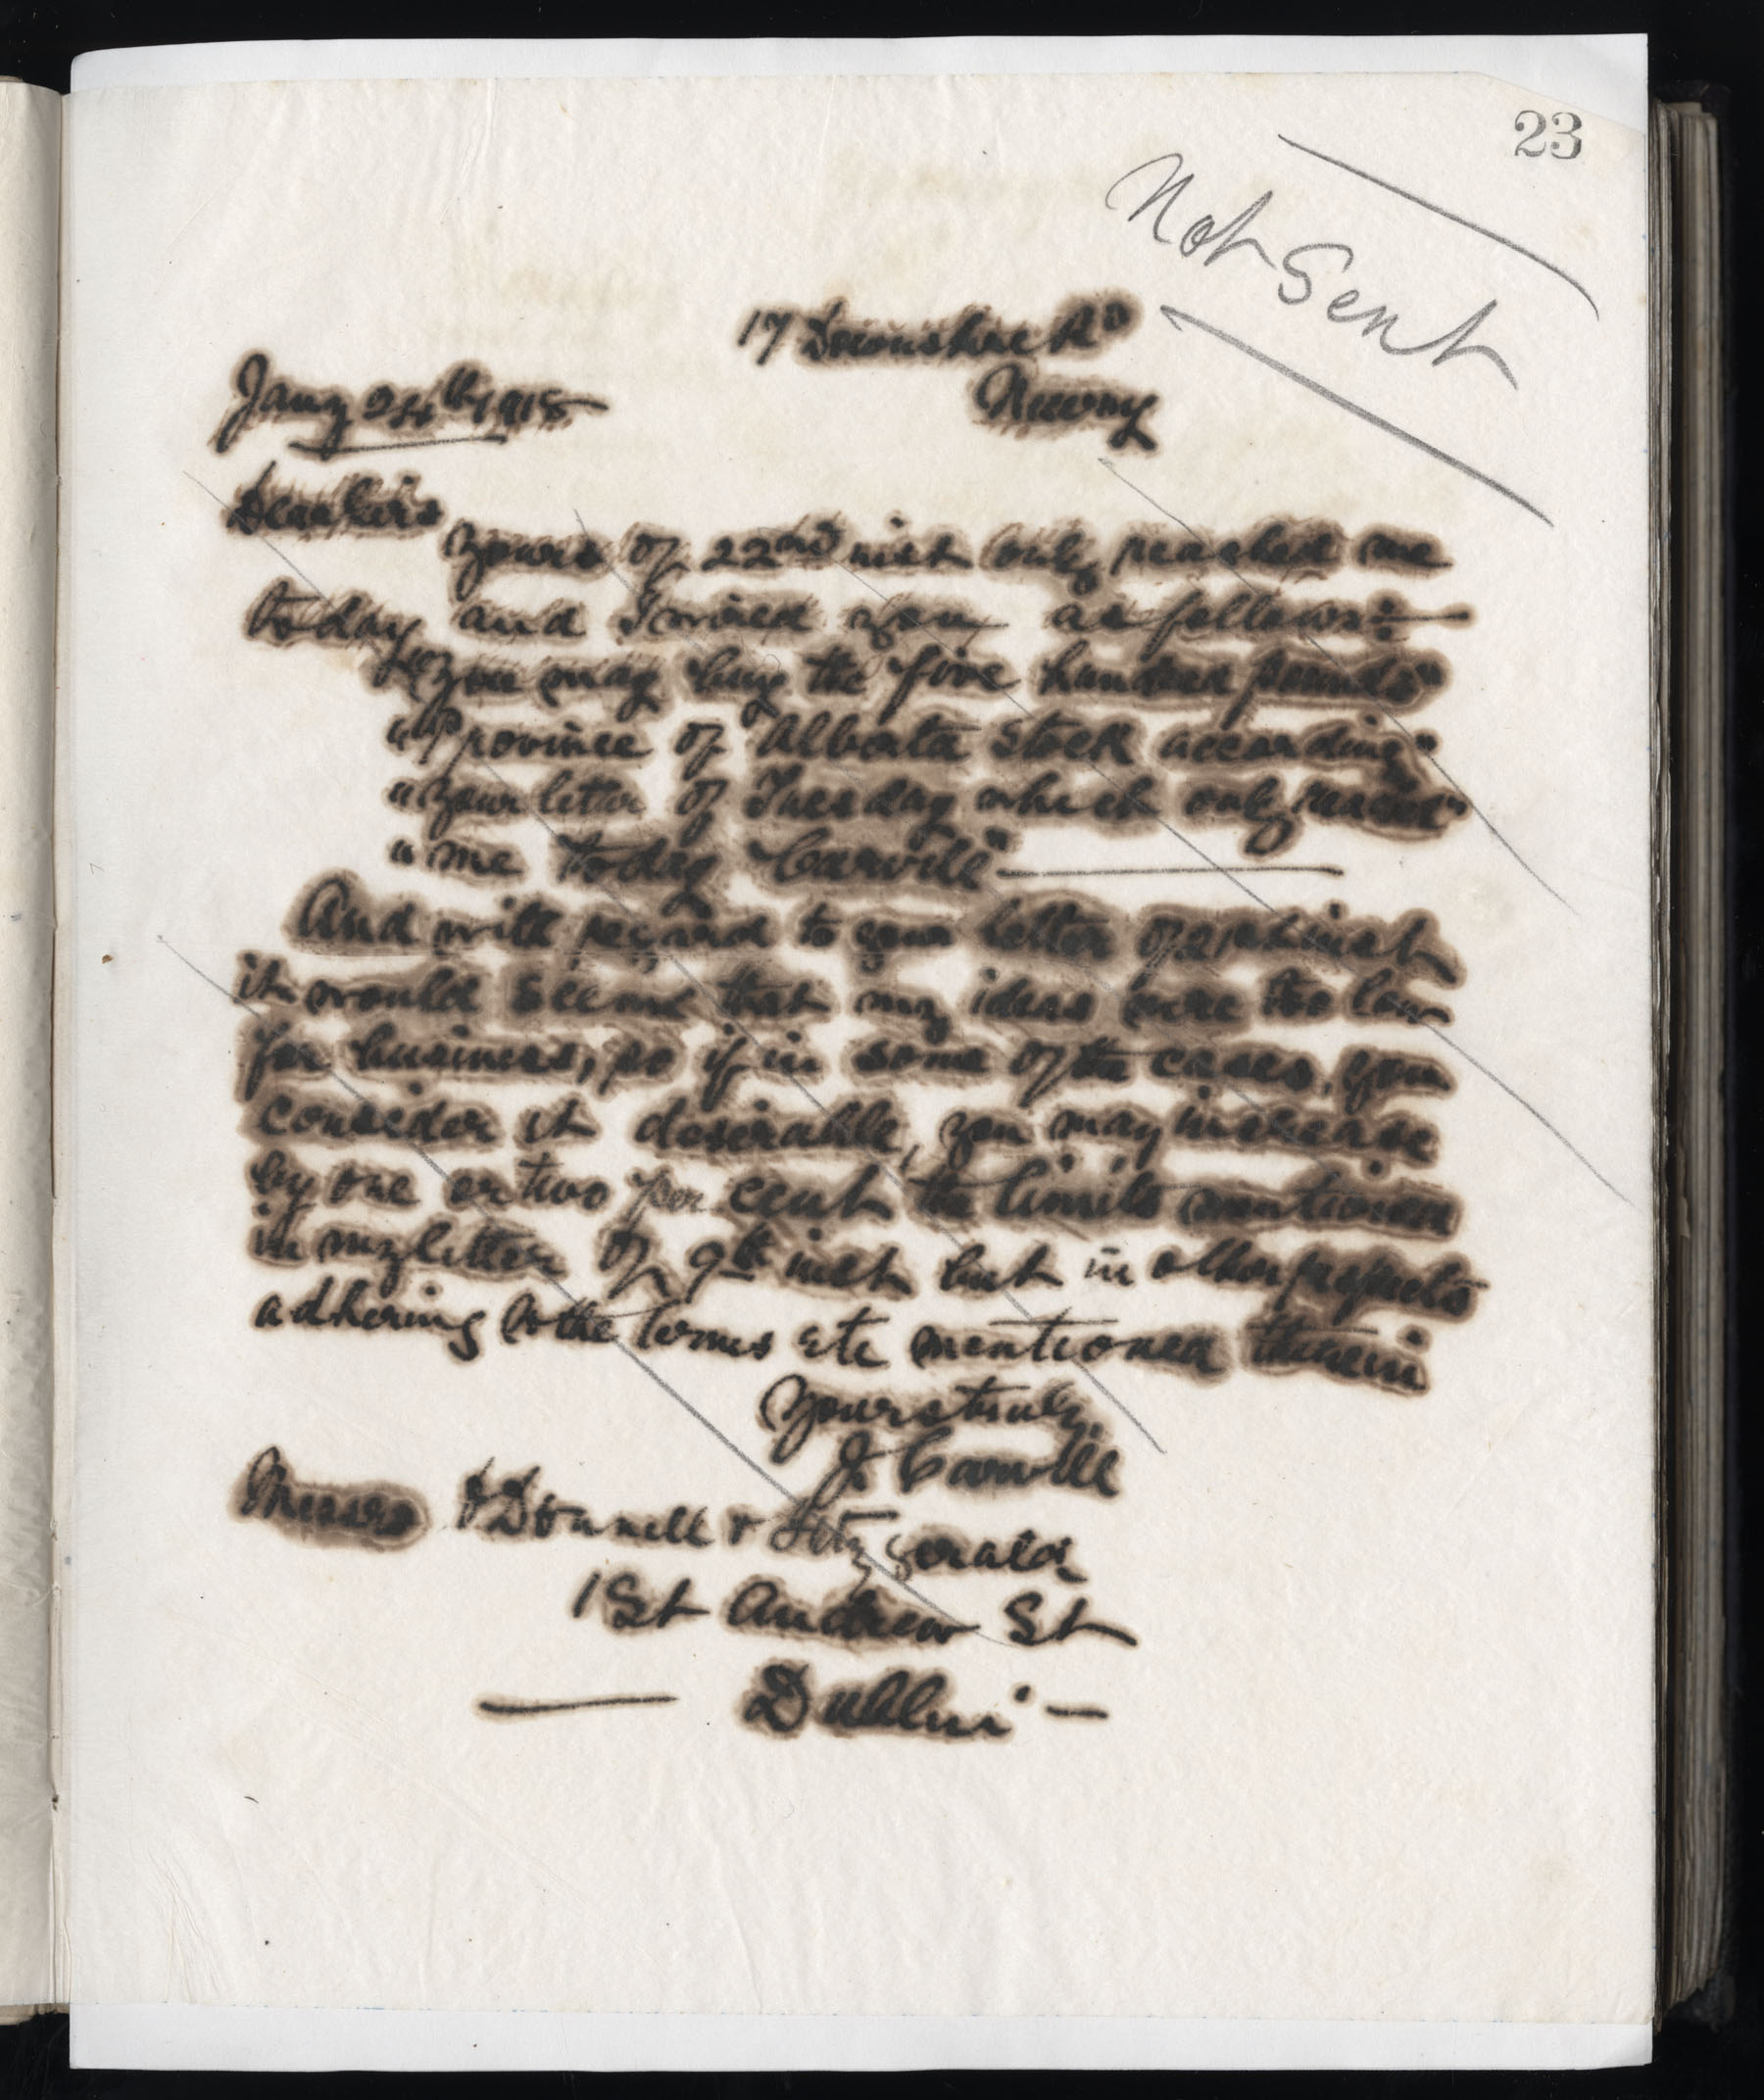 23
Not Sent
17 Devonshire Rd
Newry
Jany 24th 1918
Dear Sirs
Yours of 22nd inst only reached me
to day and I wired you as follows:—
"You may buy the five hundred pounds"
"Province of Alberta Stock according"
"your letter of Tuesday which only reached"
"me today Carvill"
And with regard to your letter of 21st inst
it would seem that my ideas were too low
for business, so if in some of the cases, you
consider it desirable, you may increase
by one or two per cent the limits mentioned
in my letter of 9th inst but in other respects
adhering to the terms etc mentioned therein
Yours truly
J. Carvill
Messrs O'Donnell & Fitzgerald
1 St Andrew St
— Dublin —